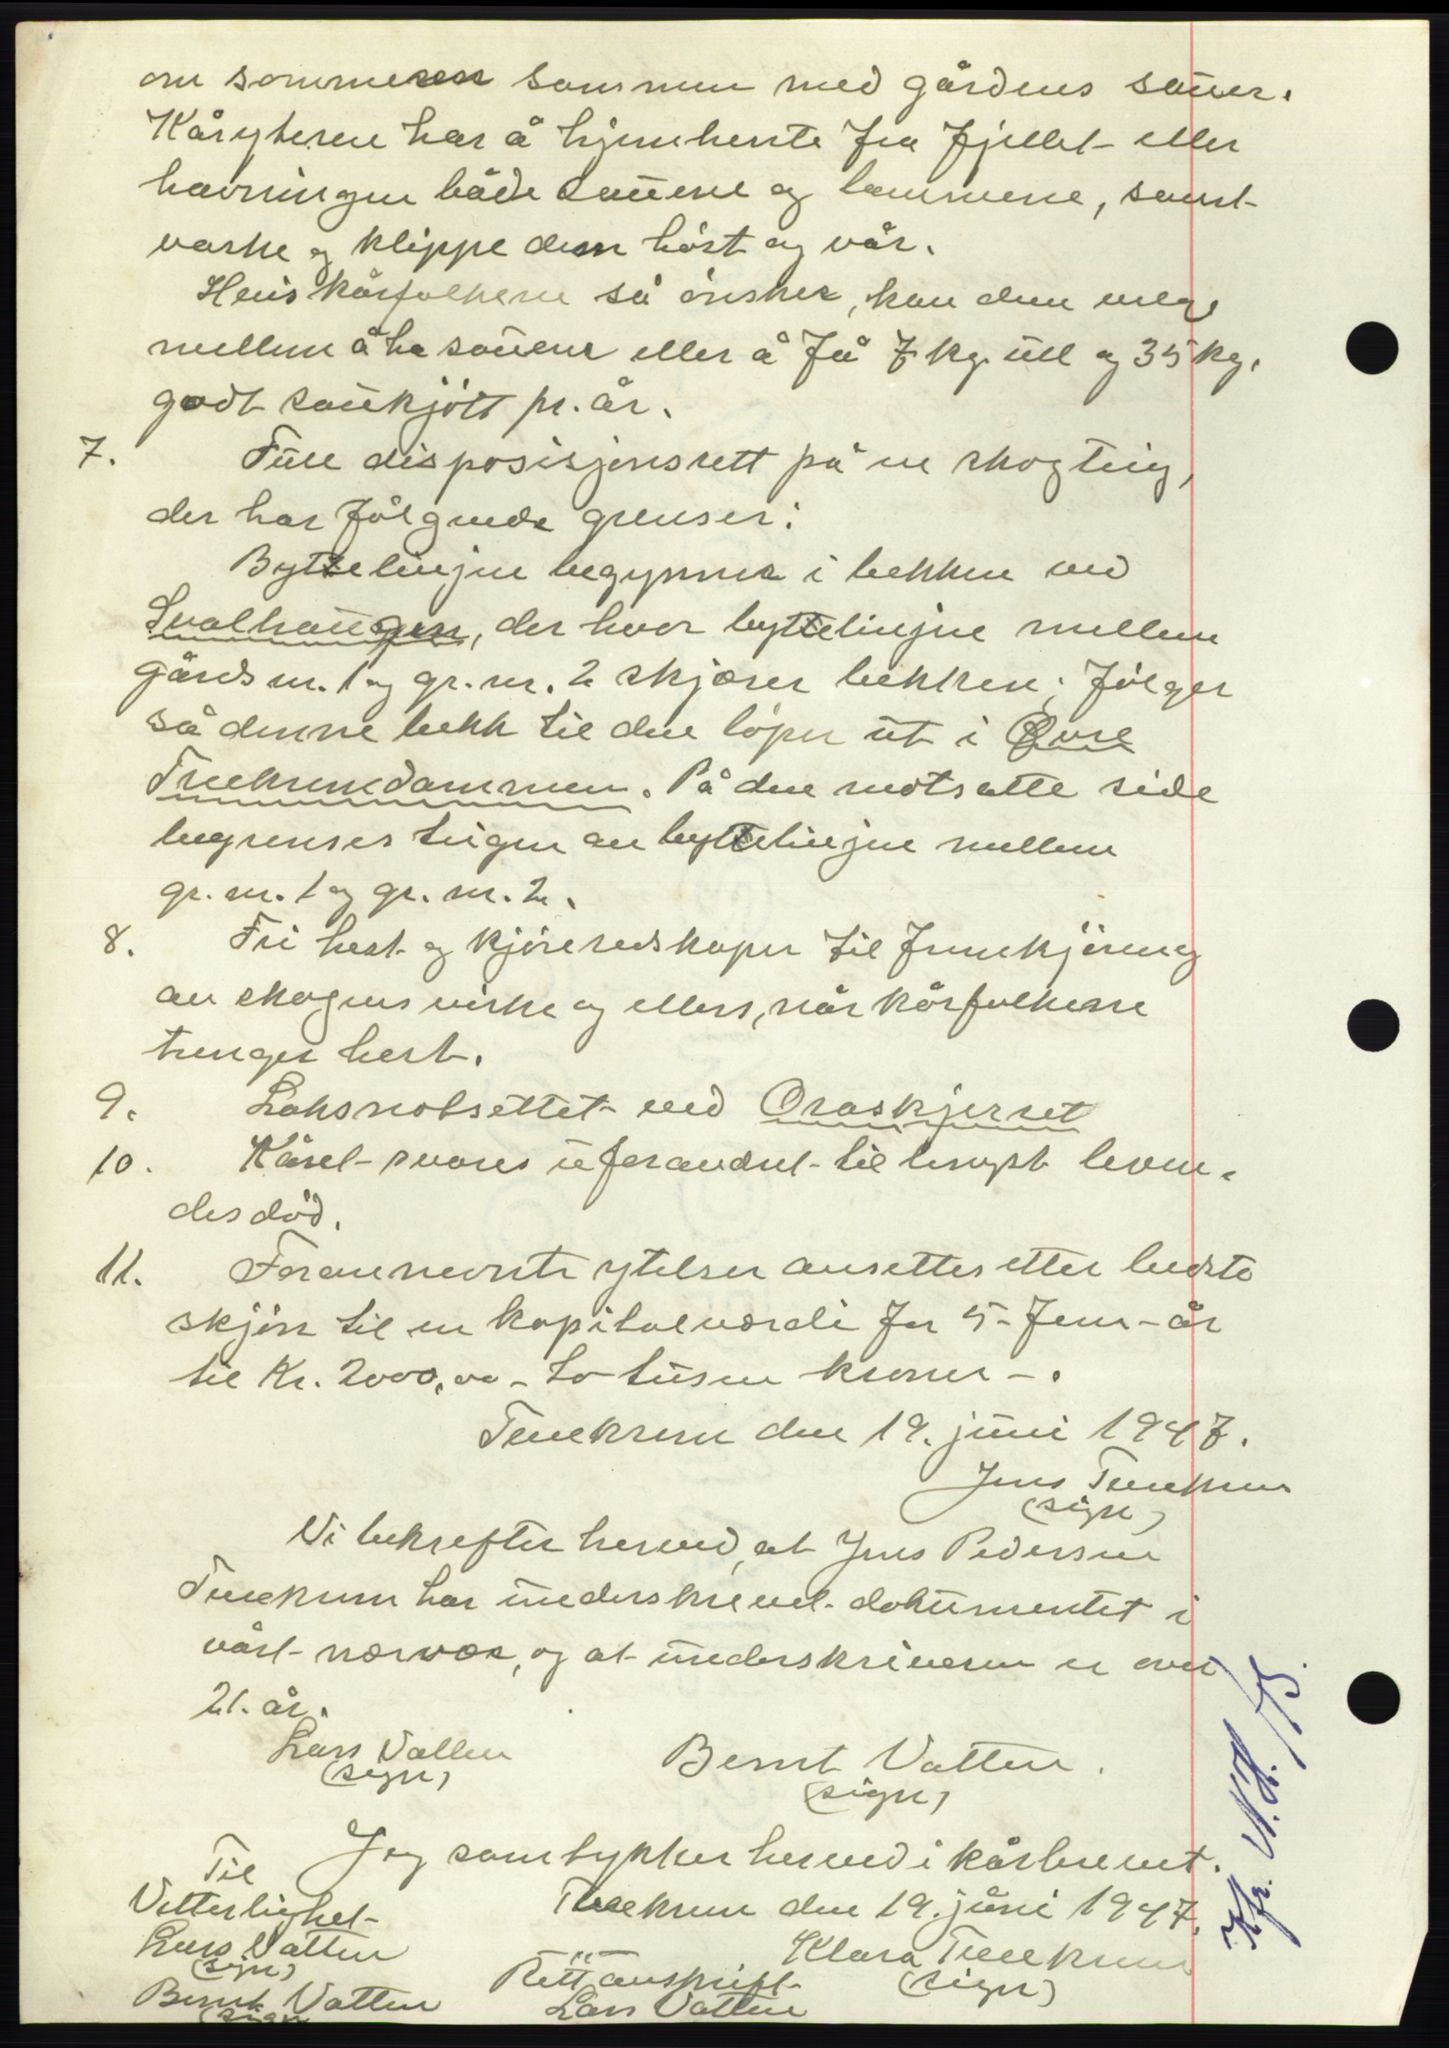 om sommeren sammen med gårdens sauer.
Kåryteren har å hjemhente fra fjellet eller
havningen både sauene og lammene, samt
vaske og klippe dem høst og vår.
Hvis kårfolkene så ønsker, kan dem velge
mellem å ha sauene eller å få 7 kg. ull og 35 kg.
godt saukjøtt pr. år.
7. Full disposisjonsrett på en skogteig,
der har følgende grenser:
Byttelinjen begynner i bekken ved
Svalhaugen, der hvor byttelinjne mellem
gårds nr. 1 og gr. nr. 2 skjærer bekken; følger
så denne bekk til den løper ut i Øvre
dammen. På den motsatte side
begrenses teigen av byttelinjne mellem
gr. nr. 1 og gr. nr. 2.
8. Fri hest og kjøreredskaper til fremkjøring
av skogens virke og ellers, når kårfolkene
trenger hest.
9. Laksnotsettet ved Oraskjerret
10. Kåret svares uforandret til lengst leven-
des død.
11. Forannevnte ytelser ansettes etter bedste
skjønn til en kapitalverdi for 5 - fem - år
til Kr. 2000,00 - to tusen kroner -.
den 19. juni 1947.
Jens
(sign)
Vi bekrefter herved, at Jens Pedersen
har underskrevet dokumentet i
vårt nærvær, og at underskriveren er over
21. år.
Lars Vatten Bernt Vatten.
(sign) (sign)
Jeg samtykker herved i kårbrevet.
Til
Vitterlighet den 19. juni 1947.
Lars Vatten Klara
(sign) (sign)
Bernt Vatten Rett avskrift
(sign) Lars Vatten
Kfr. N.H. 15.